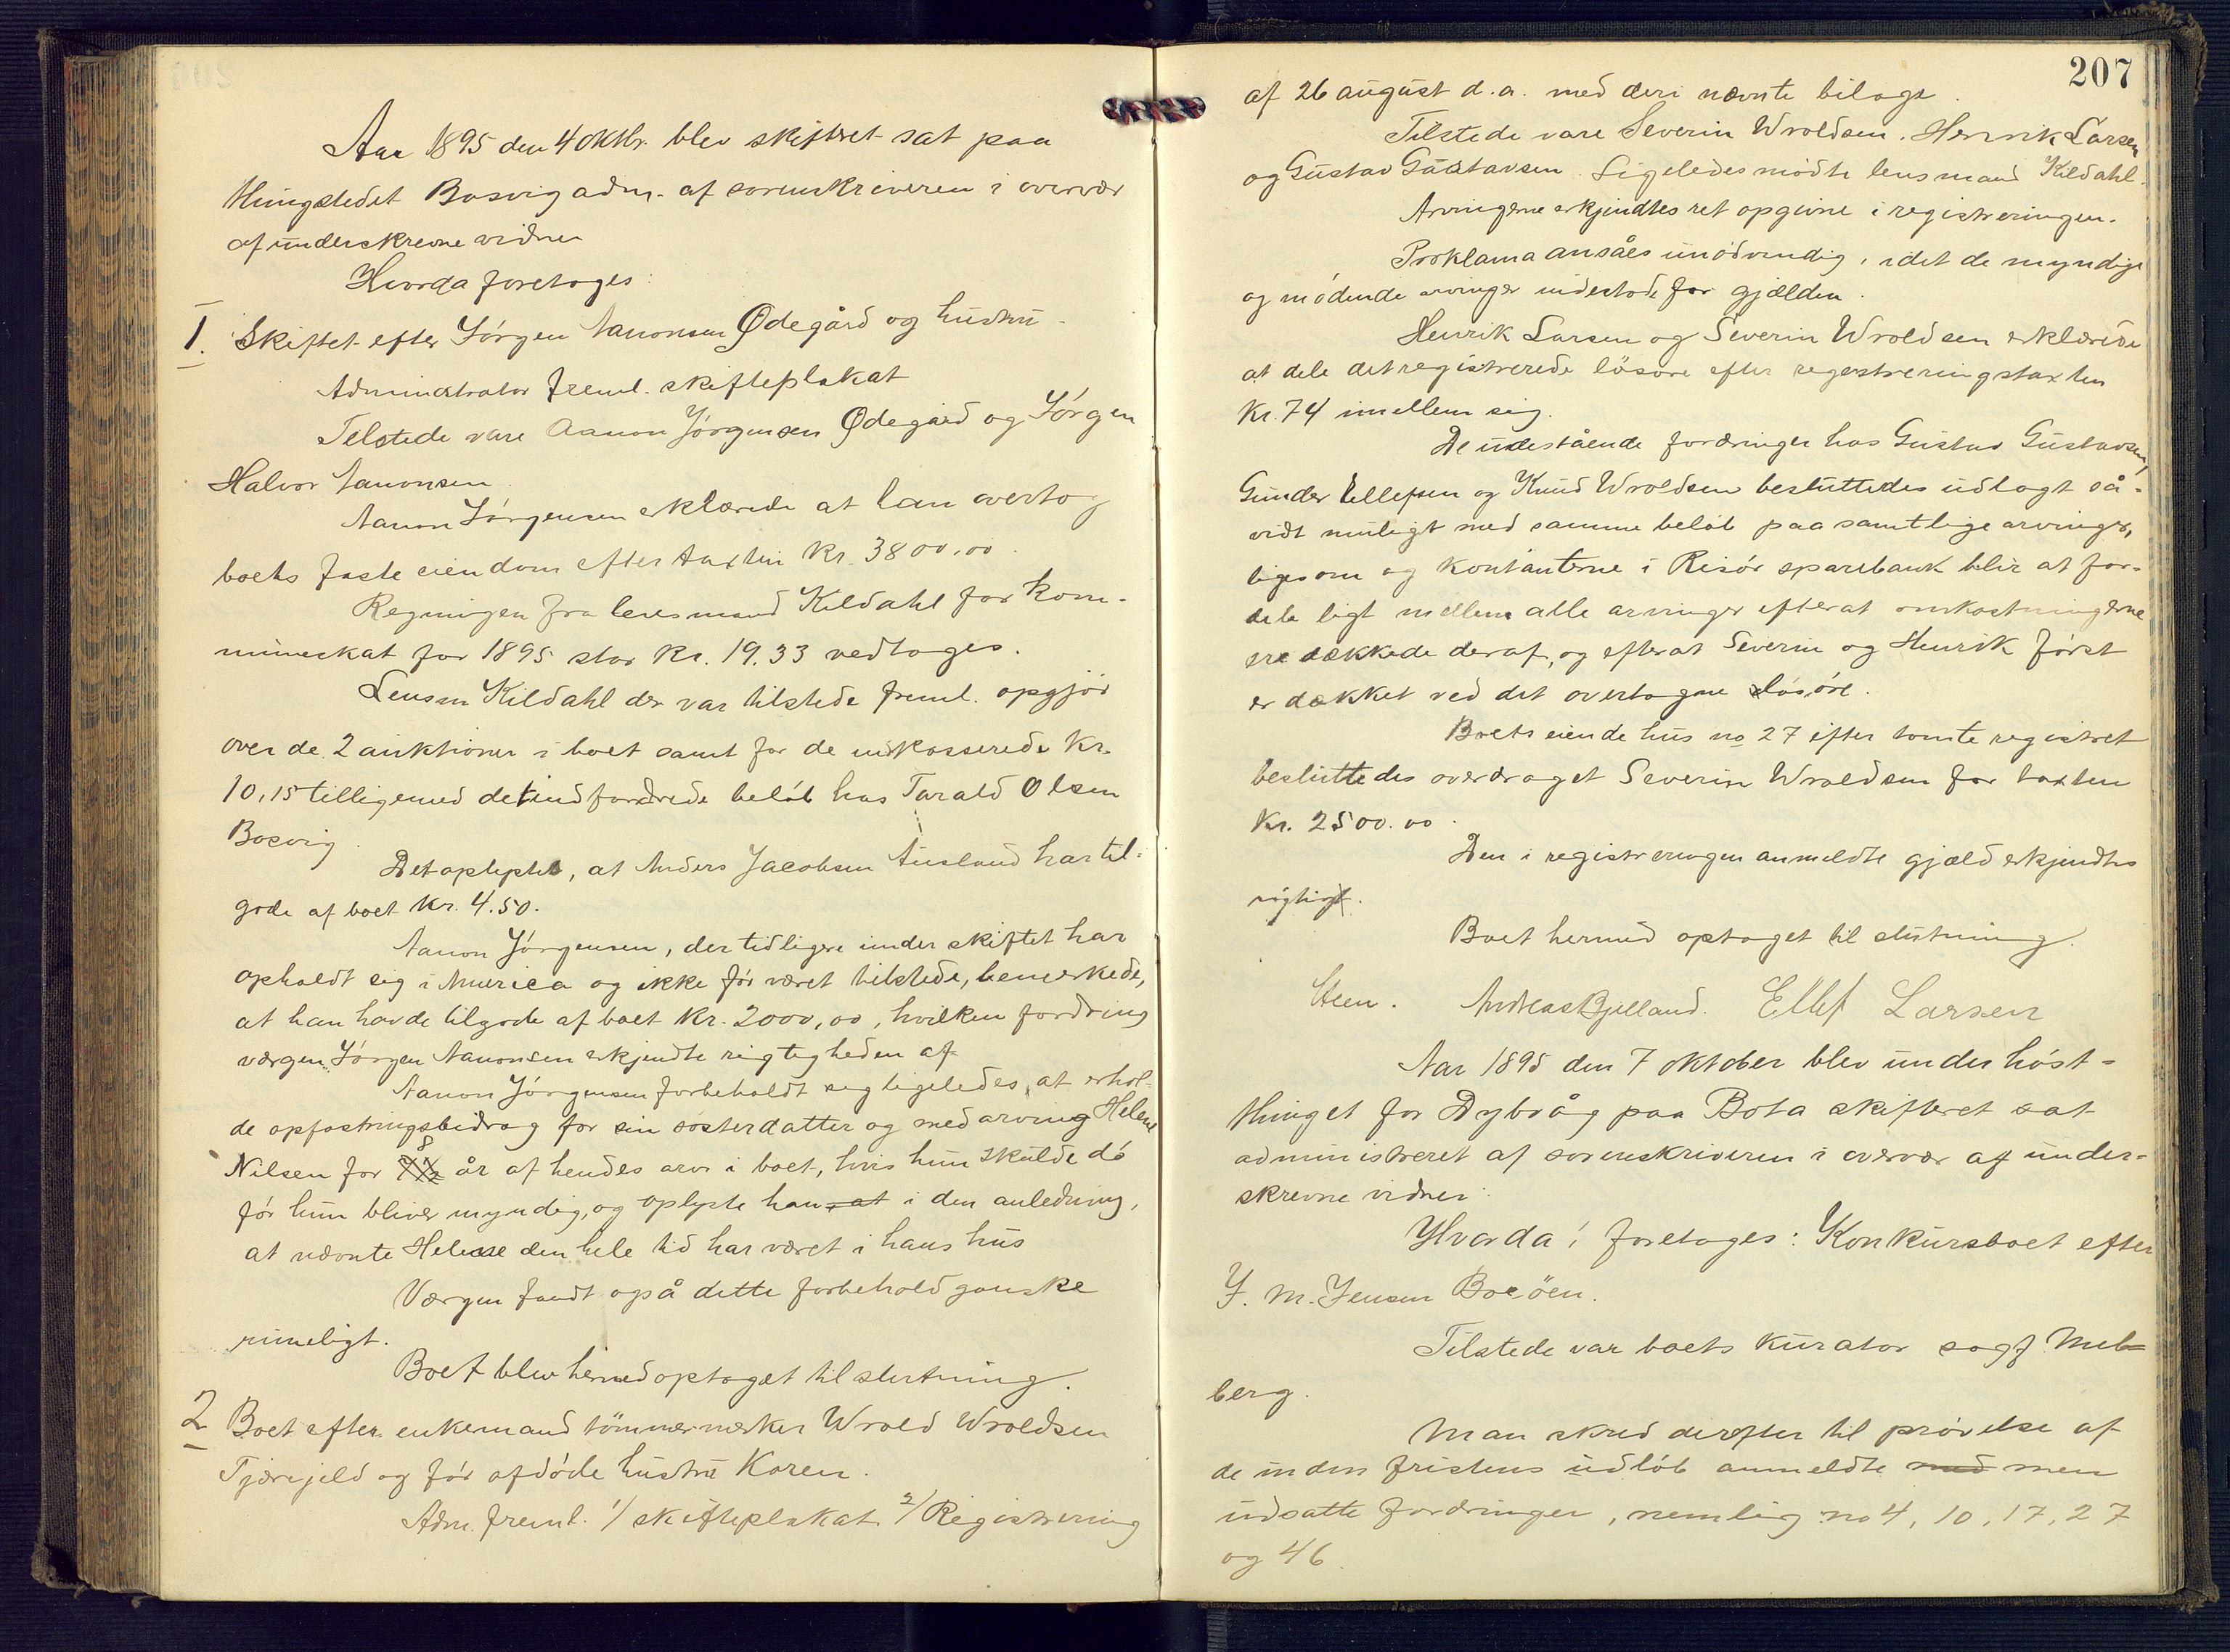 Aar 1895 den 4 oktbr. blev skiftret sat paa
thingstedet Bosvig adm. af sorenskriveren i overvær
af underskrevne vidner
Hvorda foretoges:
1. Skiftet efter Jörgen Aanonsen Ødegård og hustru
Administrator freml. skifteplakat
Tilstede vare Aanon Jörgensen Ødegård og Jörgen
Halvor Aanonsen.
Aanon Jörgensen erklærede at han overtog
boets faste eiendom efter taxten kr. 3800,00.
Regningen fra lensmand Kildahl for kom-
muneskat for 1895 stor kr. 19.33 vedtoges.
Lensm Kildahl der var tilstede freml. opgjör
over de 2 auktioner i boet samt for de indkasserede kr.
10,15 tilligemed det indfordrede belöb hos Tarald Olsen
Bosvig.
Det oplystes, at Anders Jacobsen Ausland har til-
gode af boet kr. 4.50.
Aanon Jörgensen, der tidligere under skiftet har
opholdt sig i America og ikke för været tilstede, bemerkede,
at han havde tilgode af boet kr. 2000,00, hvilken fordring
værgen Jörgen Aanonsen erkjendte rigtigheden af
Aanon Jörgensen forbeholdt seg ligeledes, at erhol-
de opfostringsbidrag for sin sösterdatter og medarving Helene
Nilsen for 8 år af hendes arv i boet, hvis hun skulde dö
för hun bliver myndig, og oplyste han, at i den anledning,
at nævnte Helene den hele tid har været i hans hus
Værgen fandt også dette forbehold ganske
rimeligt.
Boet blev hermed optaget til slutning.
2 Boet efter enkemand tömmermerker Wrold Wroldsen
Tjærefjeld og för afdöde hustru Karen.
Adm. freml. 1/ skifteplakat 2/ Registrering
207
af 26 august d.a. med deri nævnte bilage.
Tilstede vare Severin Wroldsen, Henrik Larsen
og Gustav Gustavsen. Ligeledes mödte lensmand Kildahl.
Arvingerne erkjendtes ret opgivne i registreringen.
Proklama ansåes unödvendig, idet de myndige
og mödende arvinger indestode for gjælden.
Henrik Larsen og Severin Wroldsen erklærede
at dele det registrerede lösöre efter registreringstaxten
kr. 74 imellem sig.
De udestående fordringer hos Gustav Gustavsen,
Gunder Ellefsen og Knud Wroldsen besluttedes udlagt så-
vidt muligt med samme belöb paa samtlige arvinger,
ligesom og kontanterne i Risör sparebank blir at for-
dele ligt mellem alle arvinger efterat omkostningerne
ere dækkede deraf, og efterat Severin og Henrik först
er dækket ved det overtagne lösöre.
Boets eiende hus no 27 efter tomteregistret
besluttedes overdraget Severin Wroldsen for taxten
kr. 2500.00.
Den i registreringen anmeldte gjæld erkjendtes
rigtig.
Boet hermed optaget til slutning.
Steen. Andreas Bjelland. Ellef Larsen
Aar 1895 den 7 oktober blev under höst-
thinget for Dybvåg paa Bota skifteret sat
administreret af sorenskriveren i overvær af under-
skrevne vidner.
Hvorda foretoges: Konkursboet efter
J. M. Jensen Bosöen.
Tilstede var boets kurator sagf. Meb-
berg.
Man skred derefter til prövelse af
de inden fristens udlöb anmeldte med men
udsatte fordringer, nemlig no 4, 10, 17, 27
og 46.